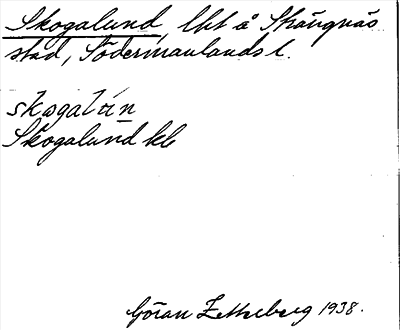 Skogalund, lht å Strängnäs
stad, Södermanlands l.
skɷgalun
Skogalund kb
Göran Zetterberg 1938.